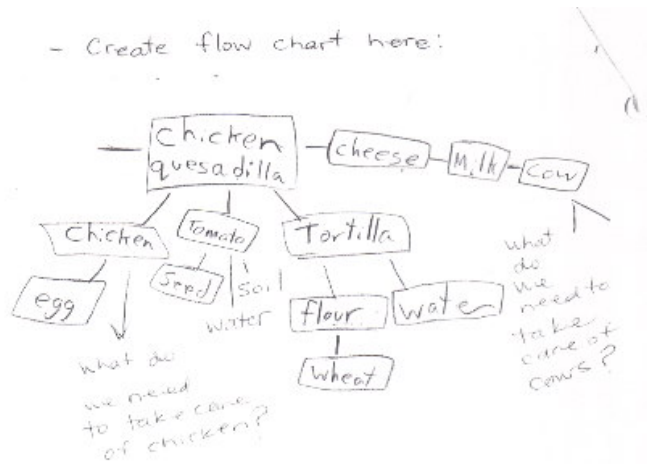 - Create flow chart here:
Chicken
quesadilla
cheese
Milk
Cow
Chicken
Tomato
Tortilla
egg
Seed
soil
water
flour
water
wheat
what do
we need
to take care
of chicken?
what
do
we
need to
take
care of
cows?